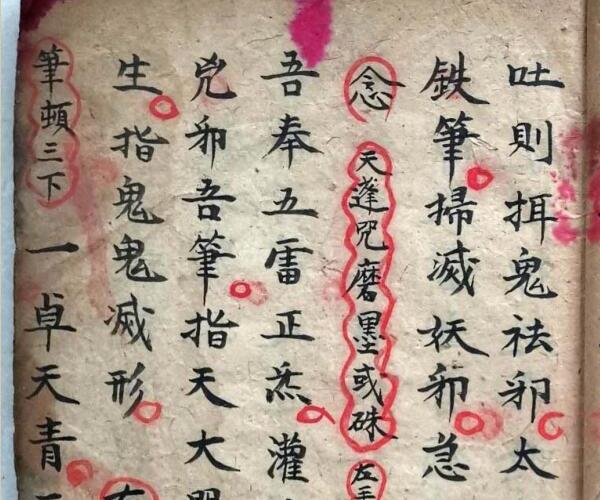 吐則挕鬼祛邪太
鉄筆掃滅妖邪急
念天蓬咒磨墨或硃左手
吾奉五雷正炁灌
兇邪吾筆指天大
生指鬼鬼滅形
筆頓三下一卓天青